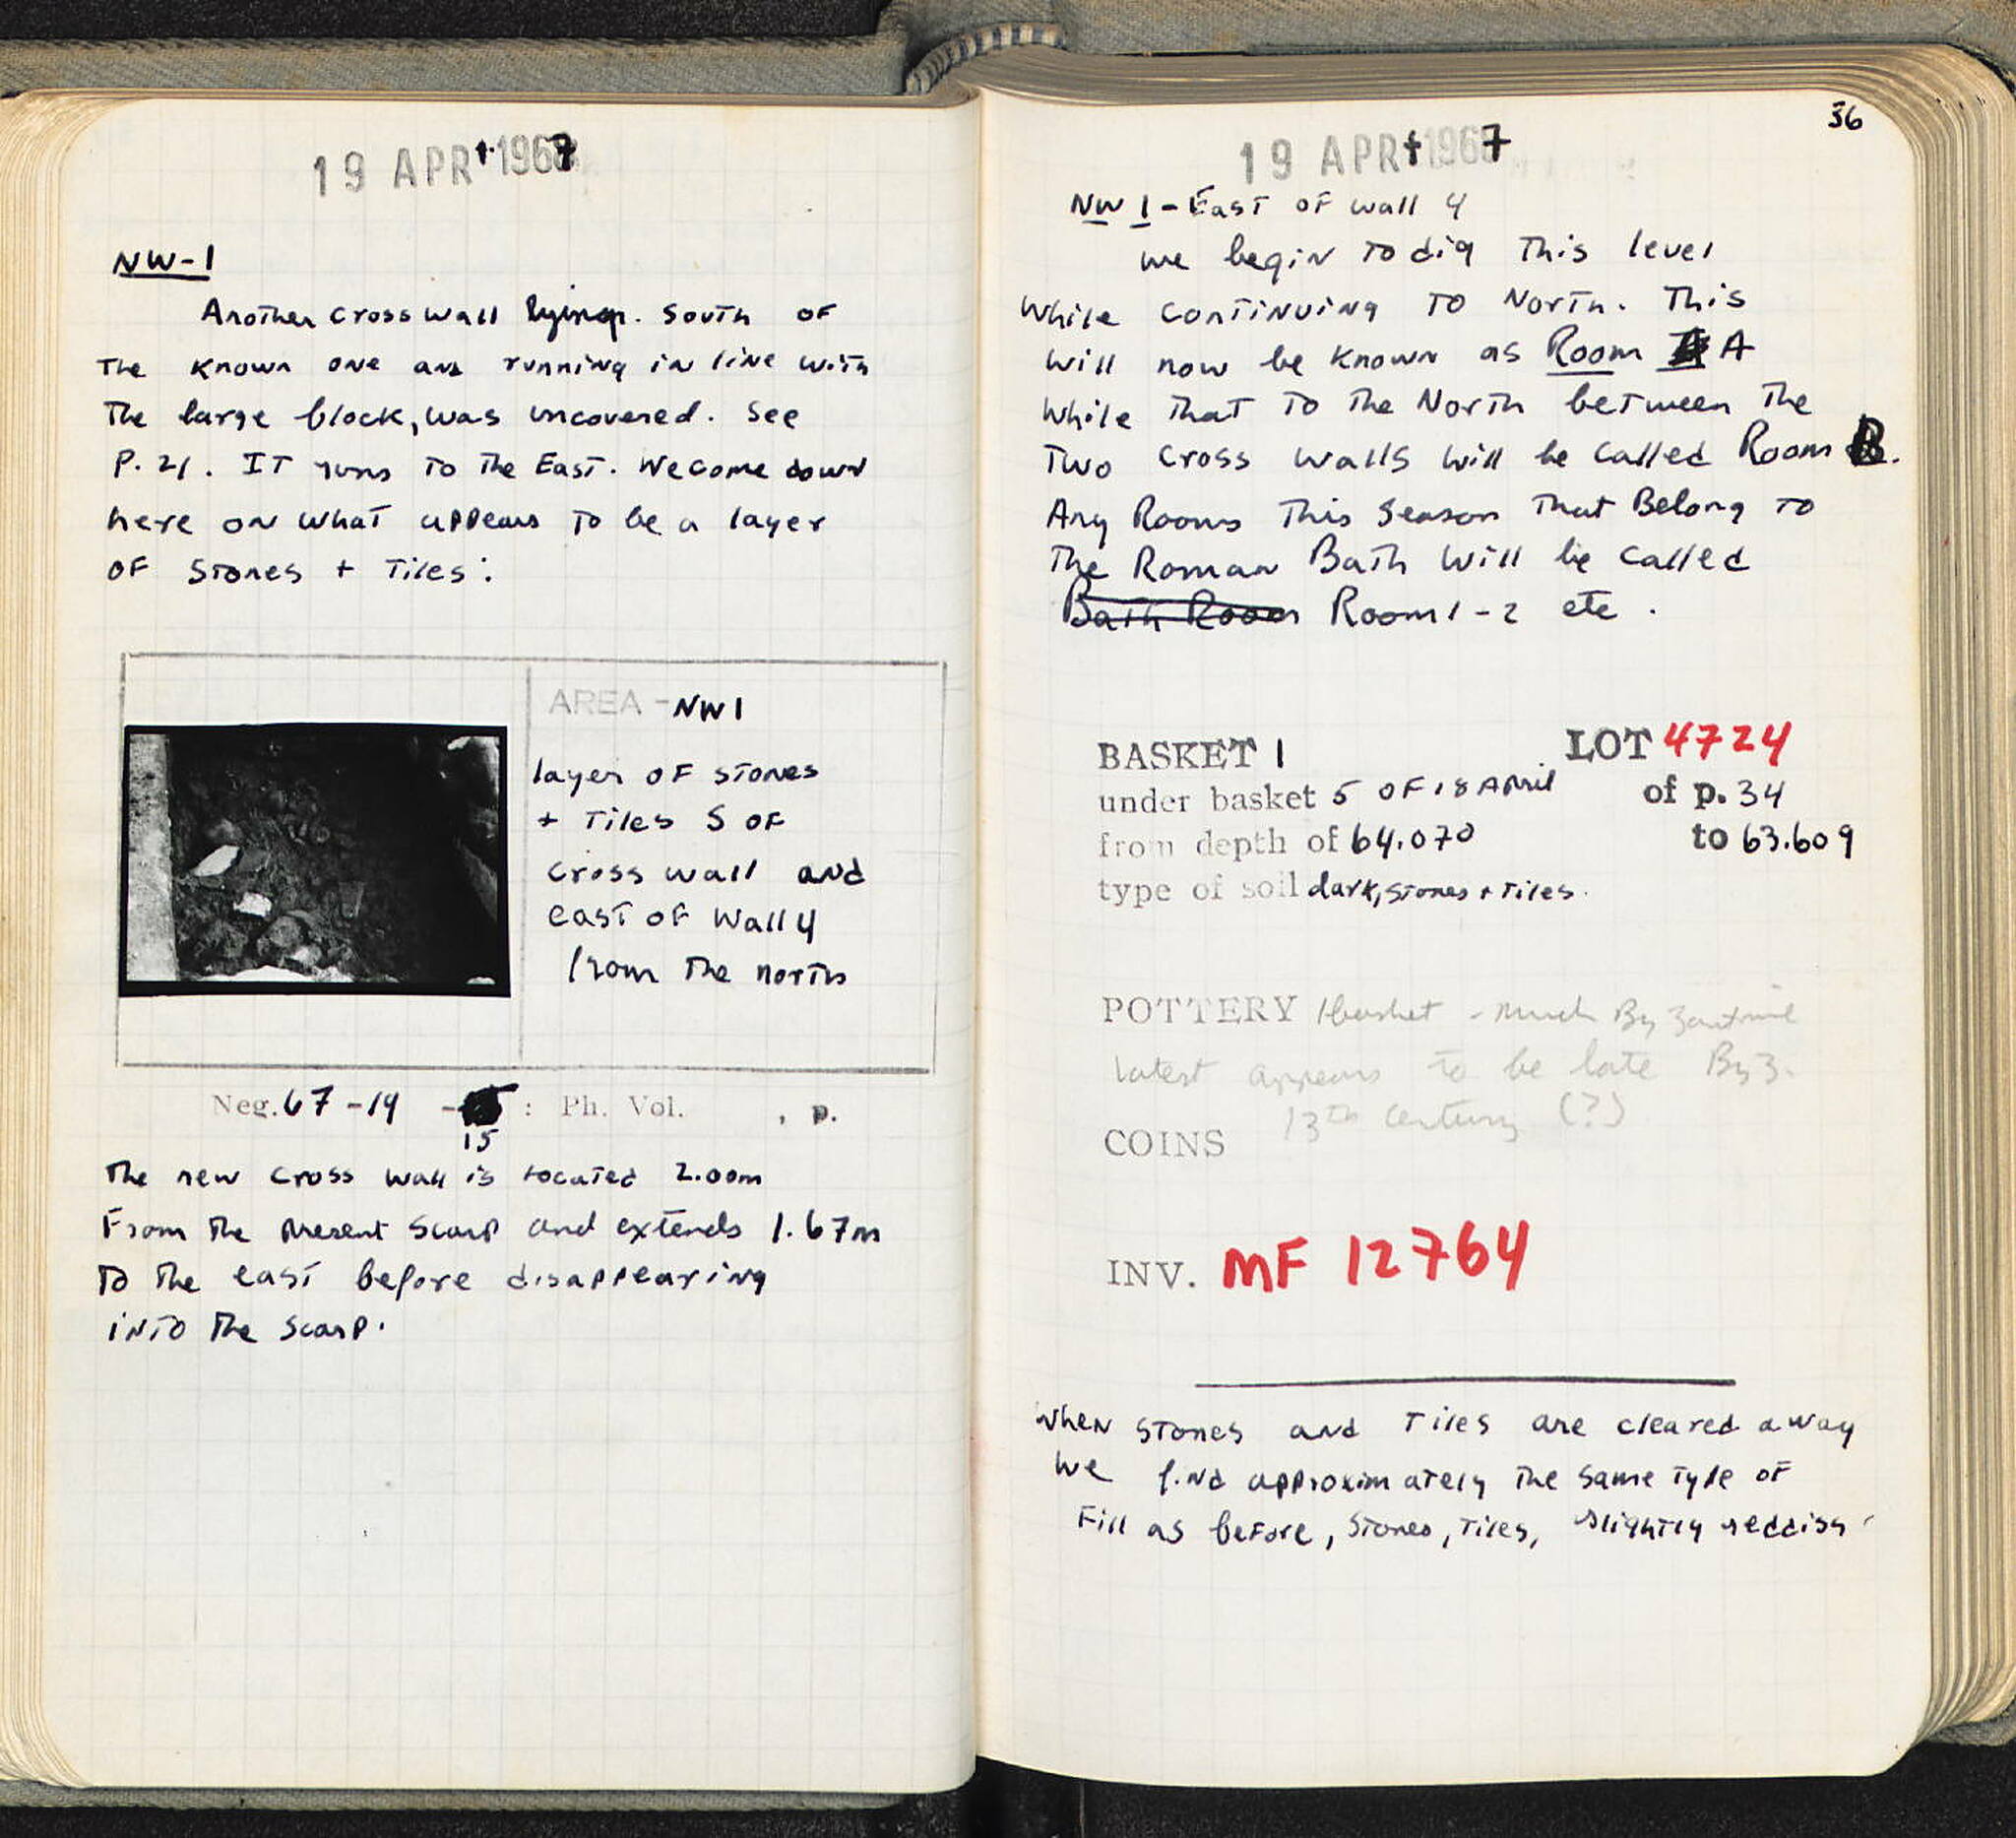 19 APR 1967
NW-1
Another cross wall lying. South of
the known one and running in line with
the large block, was uncovered. See
P. 21. It runs to the East. We come down
here on what appears to be a layer
of stones + Tiles:
AREA - NW1
layer of stones
+ Tiles S of
cross wall and
east of Wall 4
from the north
Neg. 67-19 -15 : Ph. Vol. , p.
The new cross wall is located 2.00m
From the present scarp and extends 1.67m
to the east before disappearing
into the scarp.
36
19 APR 1967
NW 1 - East of wall 4
we begin to dig this level
while continuing to North. This
will now be known as Room A
while that to the North between the
two cross walls will be called Room B.
Any Rooms this season that Belong to
the Roman Bath will be called
Bath Room Room 1-2 etc.
BASKET 1 LOT 4724
under basket 5 OF 18 April of p. 34
from depth of 64.070 to 63.609
type of soil dark, stones + Tiles.
POTTERY 1 basket - much Byzantine
latest appears to be late Byz.
13th century (?)
COINS
INV. MF 12764
When stones and Tiles are cleared away
we find approximately the same type of
Fill as before, stones, Tiles, slightly reddish